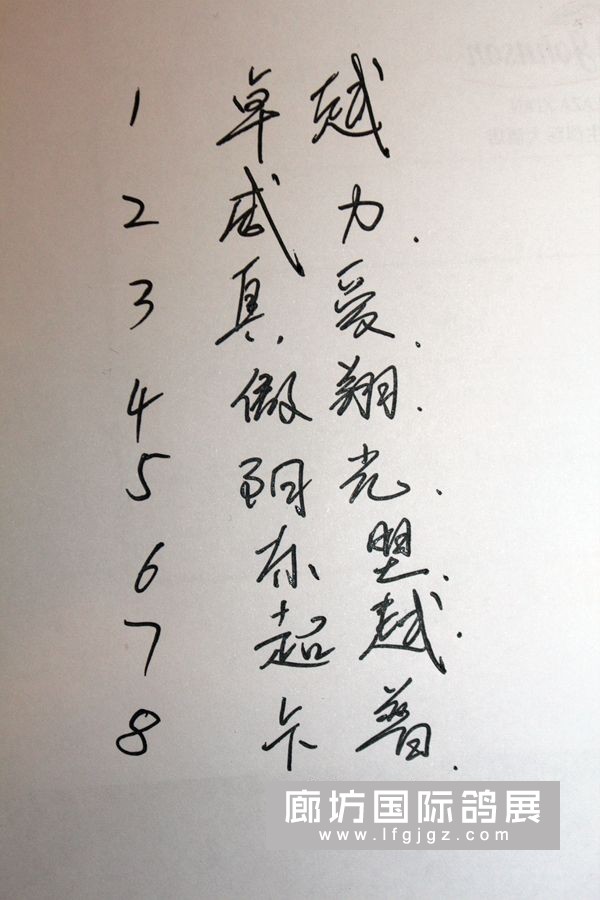 1 卓越
2 威力.
3 真爱.
4 傲翔.
5 阳光.
6 东塱.
7 超越.
8 卡普.
廊坊国际鸽展
www.lfgjgz.com